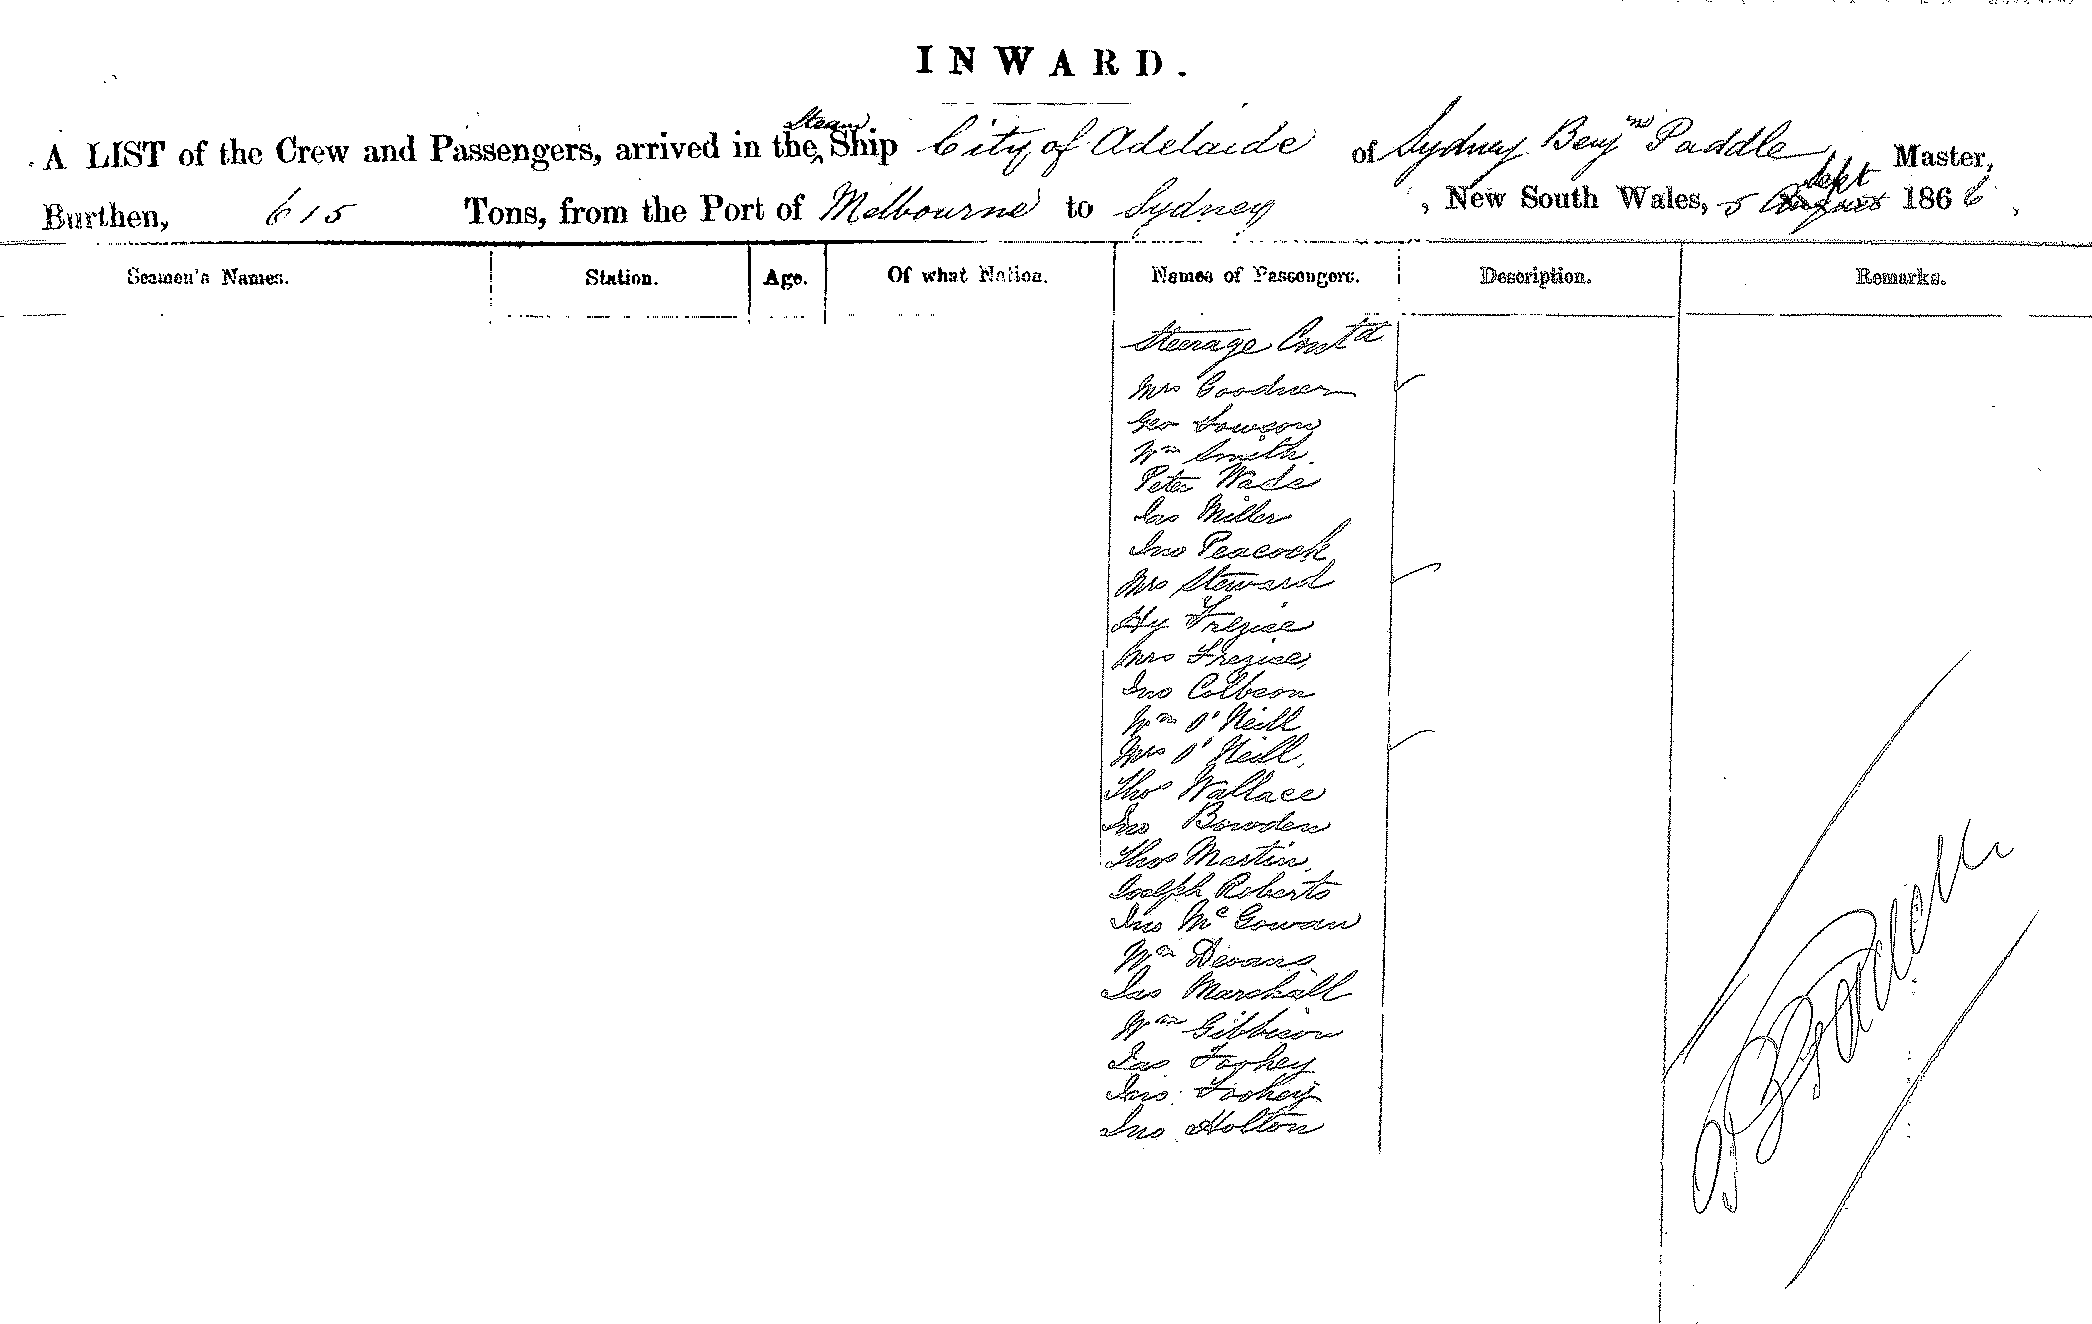 INWARD.
A LIST of the Crew and Passengers, arrived in the Steam Ship City of Adelaide of Sydney Benjn Paddle, Master,
Burthen, 615 Tons, from the Port of Melbourne to Sydney, New South Wales, 5 August Sept 1866,
Seamen's Names. Station. Age. Of what Nation. Names of Passengers. Description. Remarks.
Steerage Contd
Mrs Goodner
Geo Lowson
Wm Smith.
Peter Wade
Jas Miller
Jno Peacock
Mrs Steward
Hy Trezise
Mrs Trezise,
Jno Colbeon
Wm O'Neill
Mrs O'Neill,
Thos Wallace
Jno Bowden
Thos Martin,
Joseph Roberts
Jno McGowan
Wm Devans
Jas Marshall
Wm Gibbison
Jas Toohey
Jno. Toohey
Jno Holton